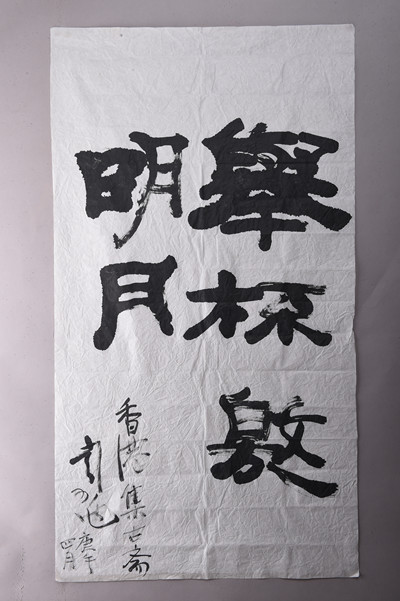 舉杯邀
明月
香港集古斋
庚午
四月